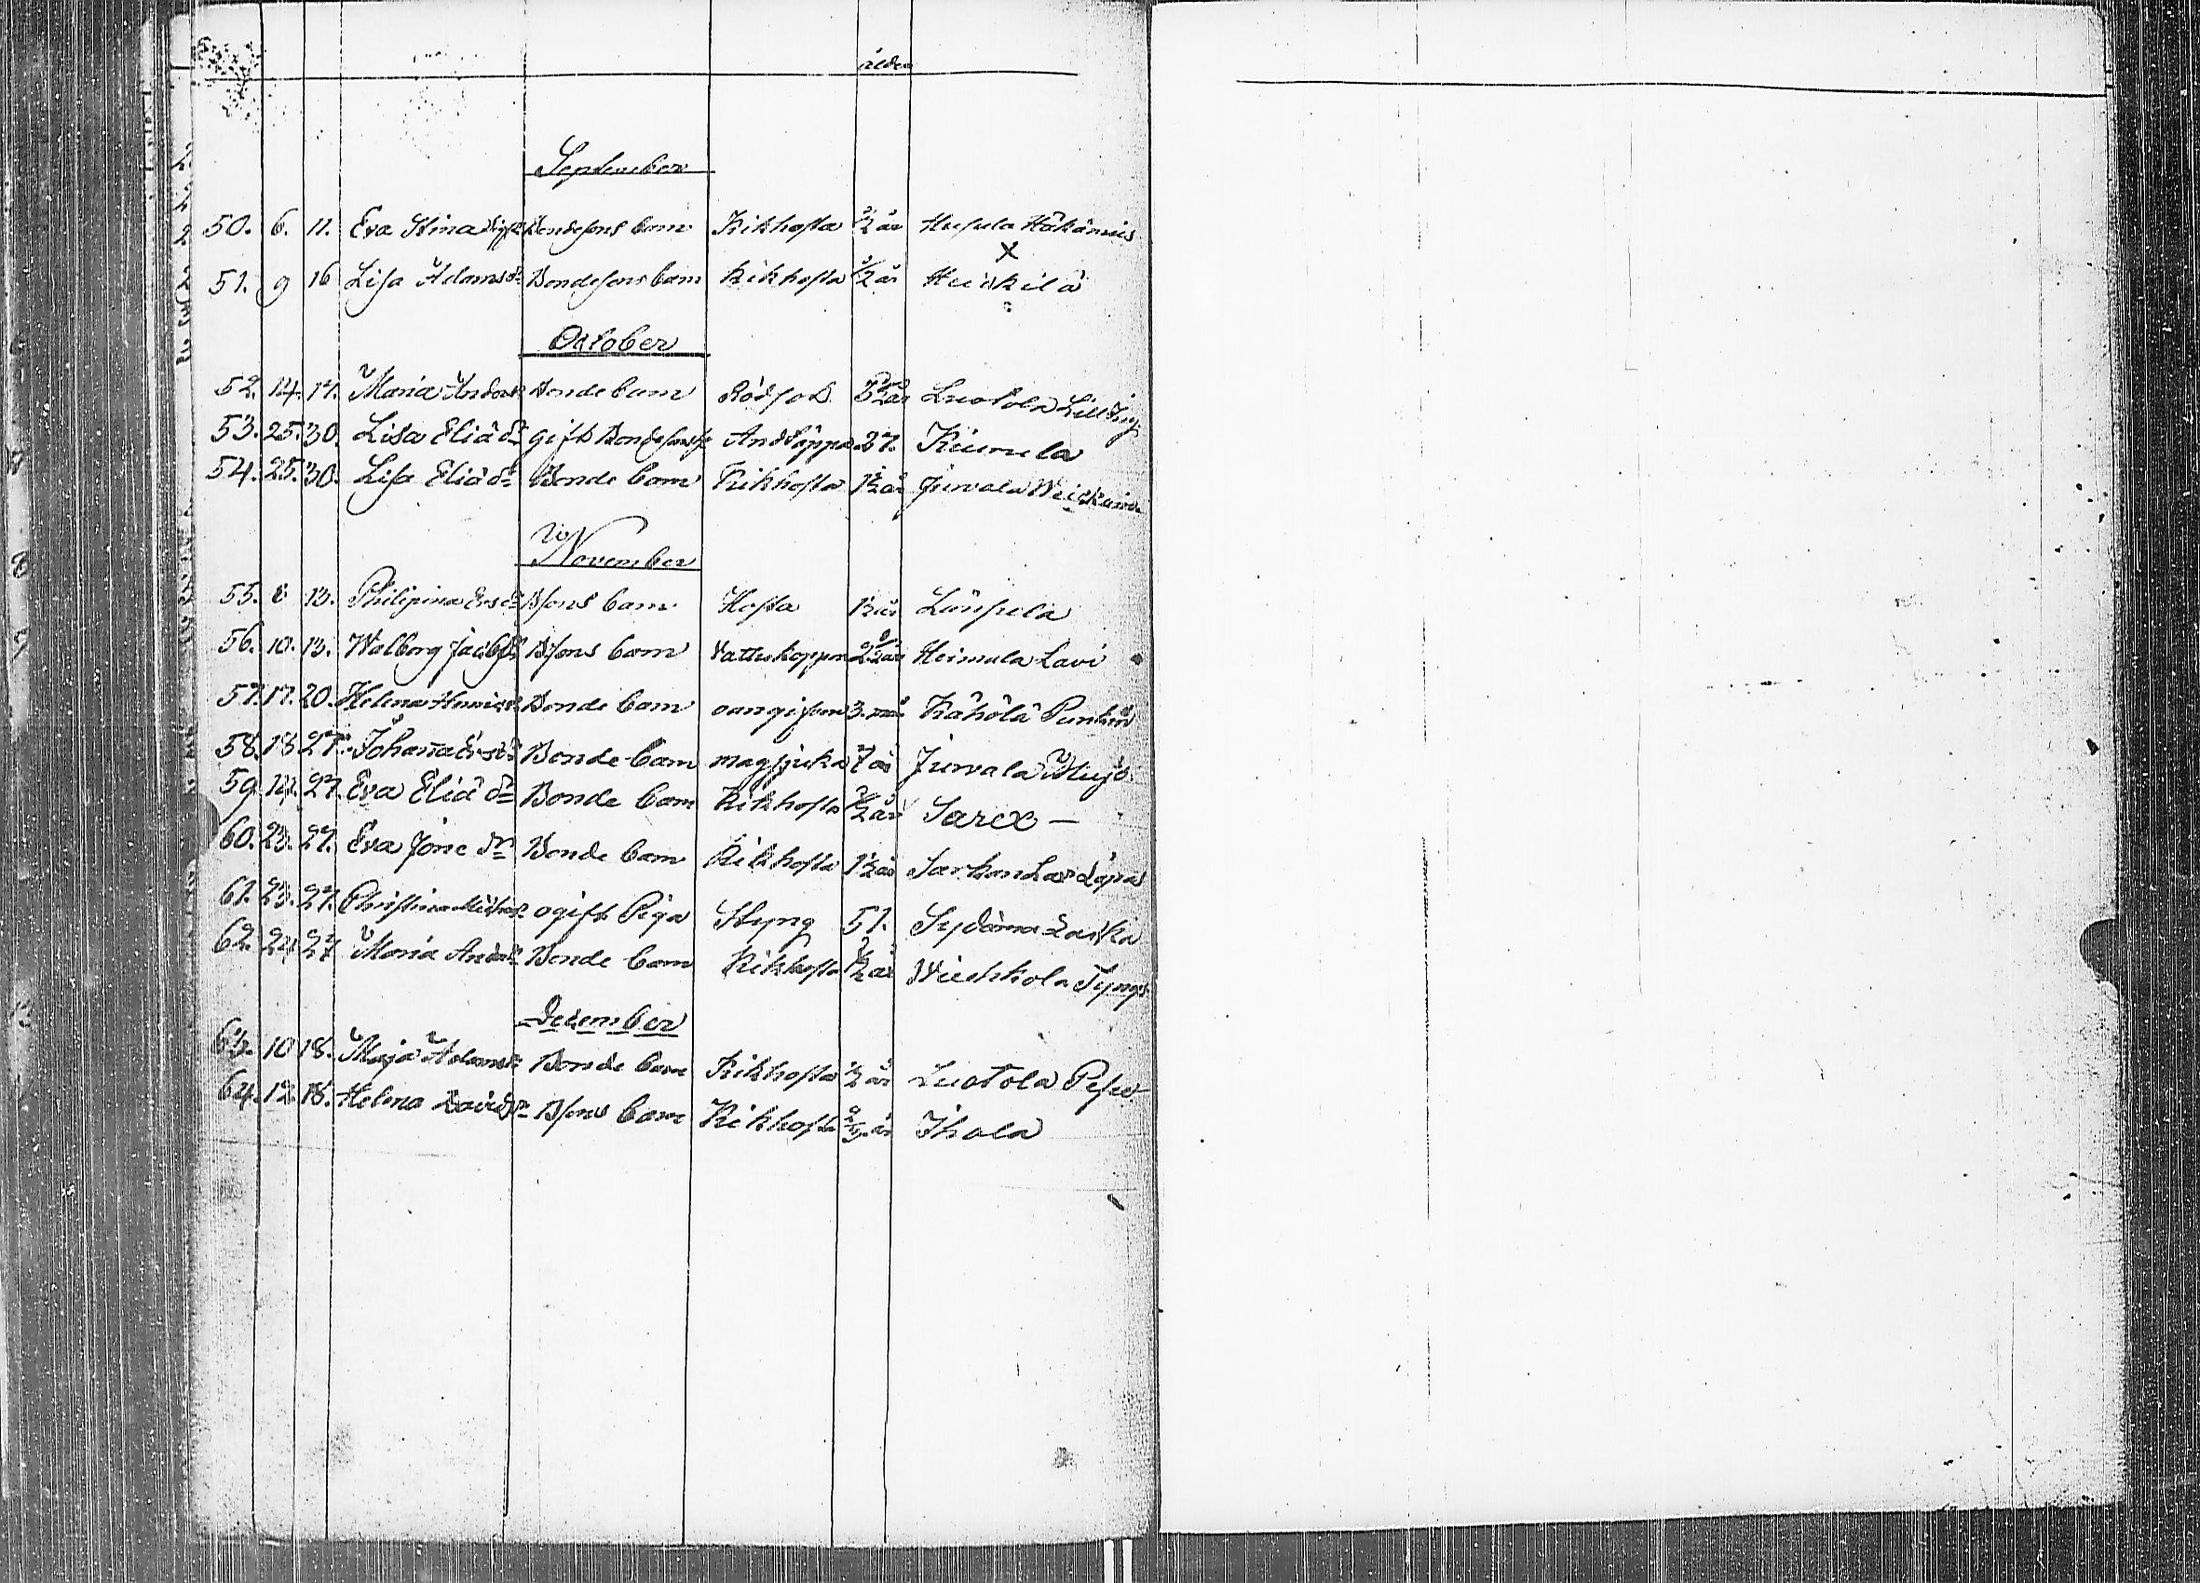 ålder
September
50. 6. 11. Eva Stina Bondesons barn Kikhosta ½ år Husula Häkänus
X
51. 9 16 Lisa Adams dr Bondesons barn Kikhosta ½ år Heickilä
Oktober
52. 14. 17. Maria Anders dr Bonde barn Rödsot Luotola Lill
53. 25. 30. Lisa Eliä dr gift Andtäppa 27. Kiumela
54. 25. 30. Lisa Eliä dr Bonde barn Kikhosta 1½ år Juvala
November
55. 8 13. Philipina Ers dr Bsons barn Hosta Länsula
56. 10. 13. Walborg Jacobs dr Bsons barn Vattukoppor Heimula Lavi
57. 17. 20. Helena Henrics dr Bonde barn oangifven 3. Kähölä
58. 18 27. Johanna Ers dr Bonde barn magsjuka 7 år Juvala
59. 14. 27. Eva Eliä dr Bonde barn Kikhosta ½ år Sarex —
60. 23. 27. Eva Jöns dr Bonde barn Kikhosta 1½ år
61. 23. 27. Christina ogift Piga Styng 51.
62. 24 27 Maria Anders dr Bonde barn Kikhosta ½ år Wiechkola
December
63. 10 18. Maja Adams dr Bonde barn Kikhosta ½ år Luotola
64. 12. 18. Helena Davids dr Bsons barn Kikhosta Ihola